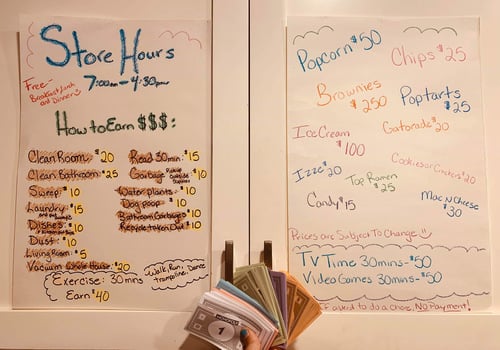 Store Hours
7:00am - 4:30pm
Free-
Breakfast, lunch
and Dinner
How to Earn $$$:
Clean Room $20
Clean Bathroom $25
Sweep $10
Laundry $15
Dishes $10
Dust $10
Living Room $5
Vacuum $20
Read 30min $15
Garbage $10
Water plants $10
Dog poop $10
Bathroom Garbages $10
Recycle taken Out $10
Exercise: 30mins
Earn $40
Walk, Run,
trampoline, Dance
Popcorn $50
Chips $25
Brownies
$250
Poptarts
$25
Ice Cream
$100
Gatorade $20
Cookies or Crackers $20
Izze $20
Top Ramen
$25
Candy $15
Mac N Cheese
$30
Prices are Subject To Change!!
TV Time 30mins - $50
Video Games 30mins - $50
If asked to do a chore, NO Payment!
MONOPOLY
1